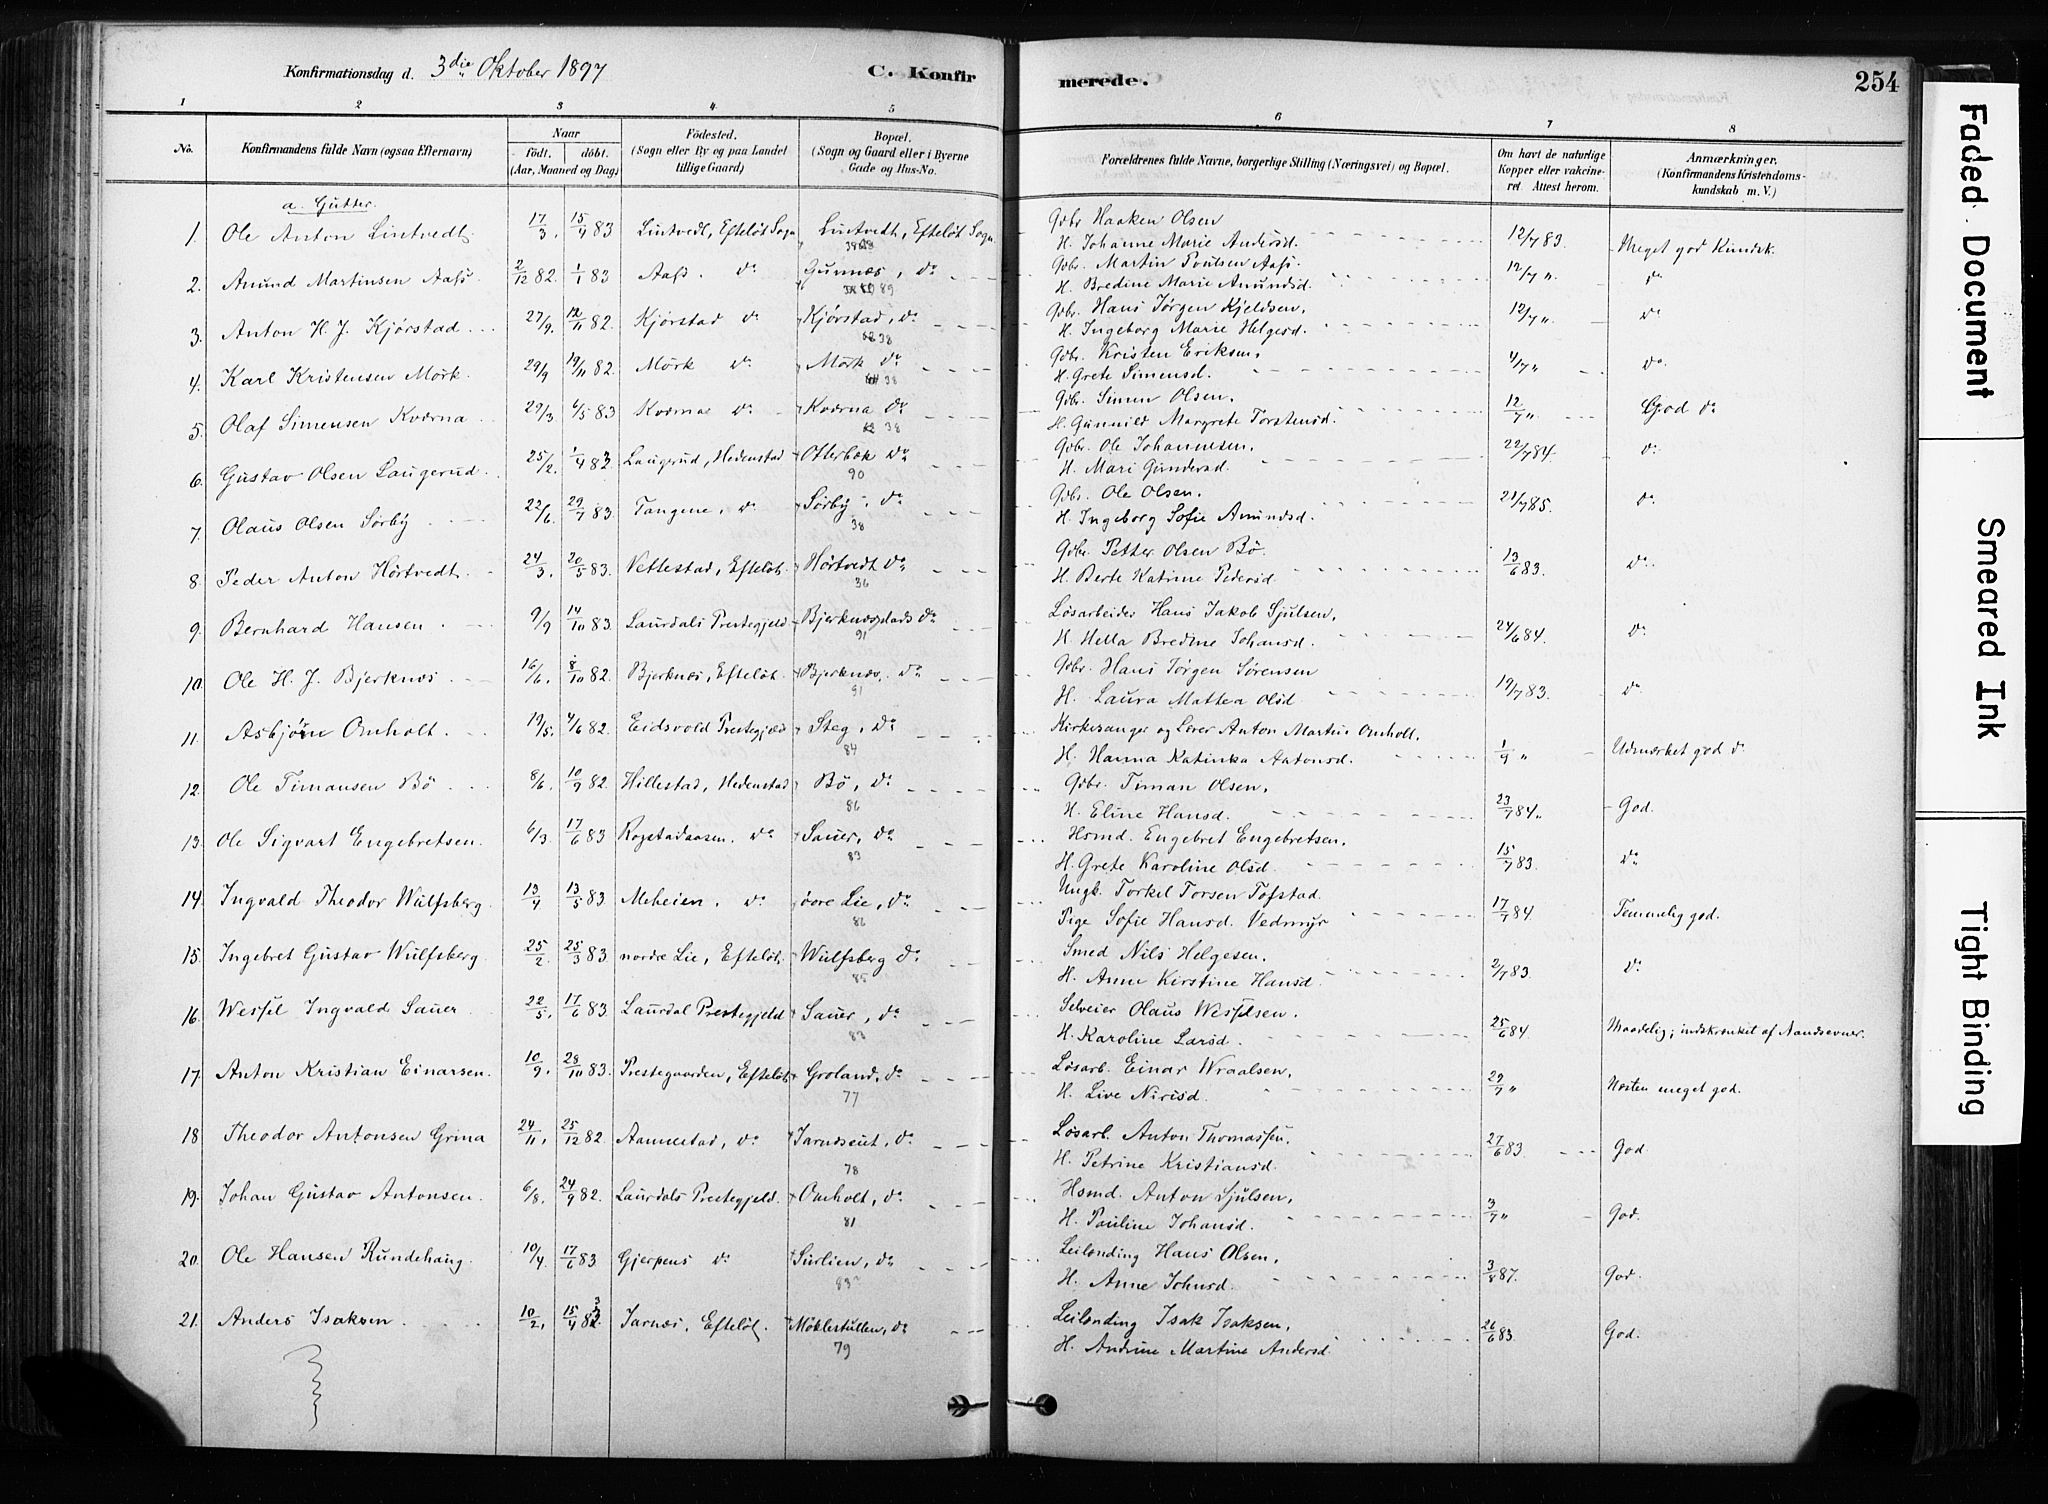 Konfirmationsdag d. 3die Oktober 1897
C. Konfirmerede.
254
1 2 3 4 5 6 7 8
No. Konfirmandens fulde Navn (ogsaa Efternavn) Naar født. døbt. (Aar, Maaned og Dag) Fødested. (Sogn eller By og paa Landet tillige Gaard) Bopæl. (Sogn og Gaard eller i Byerne Gade og Hus-No. Forældrenes fulde Navne, borgerlige Stilling (Næringsvei) og Bopæl. Om havt de naturlige Kopper eller vakcineret. Attest herom. Anmærkninger. (Konfirmandens Kristendomskundskab m. V.)
a. Gutter.
1. Ole Anton Lintvedt 17/3. 15/4 83 Lintvedt, Efteløt Sogn Lintvedt, Efteløt Sogn Gdbr Haaken Olsen
H. Johanne Marie Andersd. 12/7 83. Meget god Kundsk.
2. Amund Martinsen Aass 2/12 82. 1/1 83 Aass. do Gunnes, do 89 Gdbr. Martin Poulsen Aass.
H. Bredine Marie Amundsd. 12/7 " do
3. Anton H. J. Kjørstad 27/9. 12/11 82. Kjørstad do Kjørstad, do 38 Gdbr. Hans Jørgen Kjeldsen,
H. Ingeborg Marie Helgesd. 12/7 " do
4. Karl Kristensen Mørk. 29/9 19/11 82. Mørk do Mørk do 38 Gdbr. Kristen Eriksen,
H. Grete Simensd. 4/7 " do
5. Olaf Simensen Kværna 29/3 6/5 83 Kværna do Kværna do 38 Gdbr. Simen Olsen,
H. Gunnild Margrete Torstensd. 12/7 " God do
6. Gustav Olsen Laugerud. 25/2. 1/4 83. Laugerud, Hedenstad Otterbæk do 90 Gdbr. Ole Johannesen,
H. Mari Gundersd. 22/7 84. do
7. Olaus Olsen Sørby 22/6. 29/7 83. Tangene, do Sørby, do 38 Gdbr. Ole Olsen.
H. Ingeborg Sofie Amundsd. 21/7 85. do
8. Peder Anton Hørtvedt. 24/3. 20/5 83. Vettestad, Efteløt. Hørtvedt do 36 Gdbr. Petter Olsen Bø.
H. Berte Katrine Pedersd. 13/6 83. do
9. Bernhard Hansen. 9/9 14/10 83. Laurdals Prestegjeld Bjerknesplads do 91 Løsarbeider Hans Jakob Sjulsen,
H. Hella Bredine Johansd. 24/6 84. do
10. Ole H. J. Bjerknes 16/6. 8/10 82. Bjerknes, Efteløt. Bjerknes, do 91 Gdbr. Hans Jørgen Sørensen
H. Laura Mathea Olsd 19/7 83. do
11. Asbjørn Omholt. 19/5. 4/6 82. Eidsvold Prestegjeld Steg, do 84 Kirkesanger og Lærer Anton Martin Omholt,
H. Hanna Katinka Antonsd. 1/9 " Udmærket god do
12. Ole Timansen Bø 8/6. 10/9 82. Hillestad, Hedenstad Bø, do 86 Gdbr. Timan Olsen,
H. Eline Hansd. 23/7 84 " God.
13. Ole Sigvart Engebretsen. 6/3. 17/6 83 Rogstadaasen. do Sauer, do 83 Hsmd. Engebret Engebretsen,
H. Grete Karoline Olsd. 15/7 83. do
14. Ingvald Theodor Wulfsberg. 13/4 13/5 83 Meheien, do øvre Lie, do 86 Ungk. Torkel Torsen Tofstad.
Pige Sofie Hansd. Vedmyr 17/7 84. Temmelig god.
15. Ingebret Gustav Wulfsberg. 25/2. 25/3 83 nordre Lie, Efteløt. Wulfsberg do 85 Smed Nils Helgesen,
H. Anne Kirstine Hansd. 2/7 83. do
16. Wessel Ingvald Sauer 22/5. 17/6 83 Laurdal Prestegjeld Sauer, do 83 Selveier Olaus Wesselsen.
H. Karoline Larsd. 25/6 84. Maadelig; indskrænket af Aandsevner.
17. Anton Kristian Einarsen. 10/9. 28/10 83. Prestegaarden, Efteløt Groland, do 77 Løsarb. Einar Wraalsen,
H. Live Nirisd. 29/7 " Næsten meget god.
18 Theodor Antonsen Grina 24/11. 25/12 82. Aannestad, do Jarnseut, do 78 Løsarb. Anton Thomassen.
H. Petrine Kristiansd. 27/6 83. God
19. Johan Gustav Antonsen. 6/8. 24/9 82. Laurdals Prestegjeld. Omholt, do 81 Hsmd. Anton Sjulsen,
H. Pauline Johansd. 3/7 " God.
20. Ole Hansen Rundehaug. 10/4. 17/6 83 Gjerpens do Surlien, do 83 Leilending Hans Olsen,
H. Anne Johnsd. 3/8 87. God.
21. Anders Isaksen 10/2. 15/4 83 Jarnes, Efteløt. Møklestullen, do 79 Leilending Isak Isaksen,
H. Andrine Martine Andersd. 26/6 83. God.
Faded Document
Smeared Ink
Tight Binding